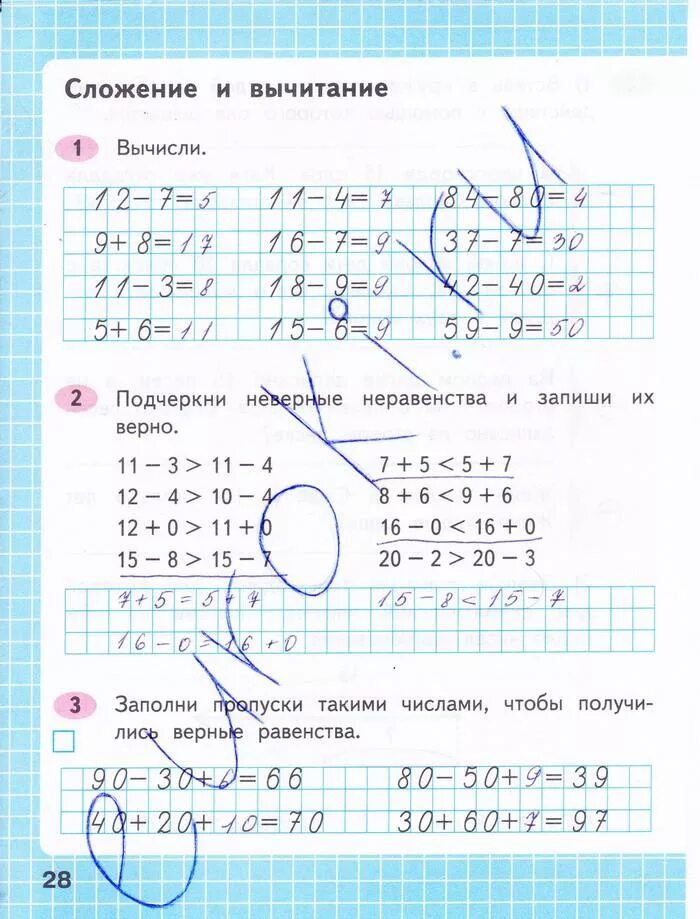 Сложение и вычитание
1 Вычисли.
12-7=5 11-4=7 84-80=4
9+8=17 16-7=9 37-7=30
11-3=8 18-9=9 42-40=2
5+6=11 15-6=9 59-9=50
2 Подчеркни неверные неравенства и запиши их
верно.
11 - 3 > 11 - 4 7 + 5 < 5 + 7
12 - 4 > 10 - 4 8 + 6 < 9 + 6
12 + 0 > 11 + 0 16 - 0 < 16 + 0
15 - 8 > 15 - 7 20 - 2 > 20 - 3
7+5=5+7 15-8<15-7
16-0=16+0
3 Заполни пропуски такими числами, чтобы получи-
лись верные равенства.
90-30+6=66 80-50+9=39
40+20+10=70 30+60+7=97
28